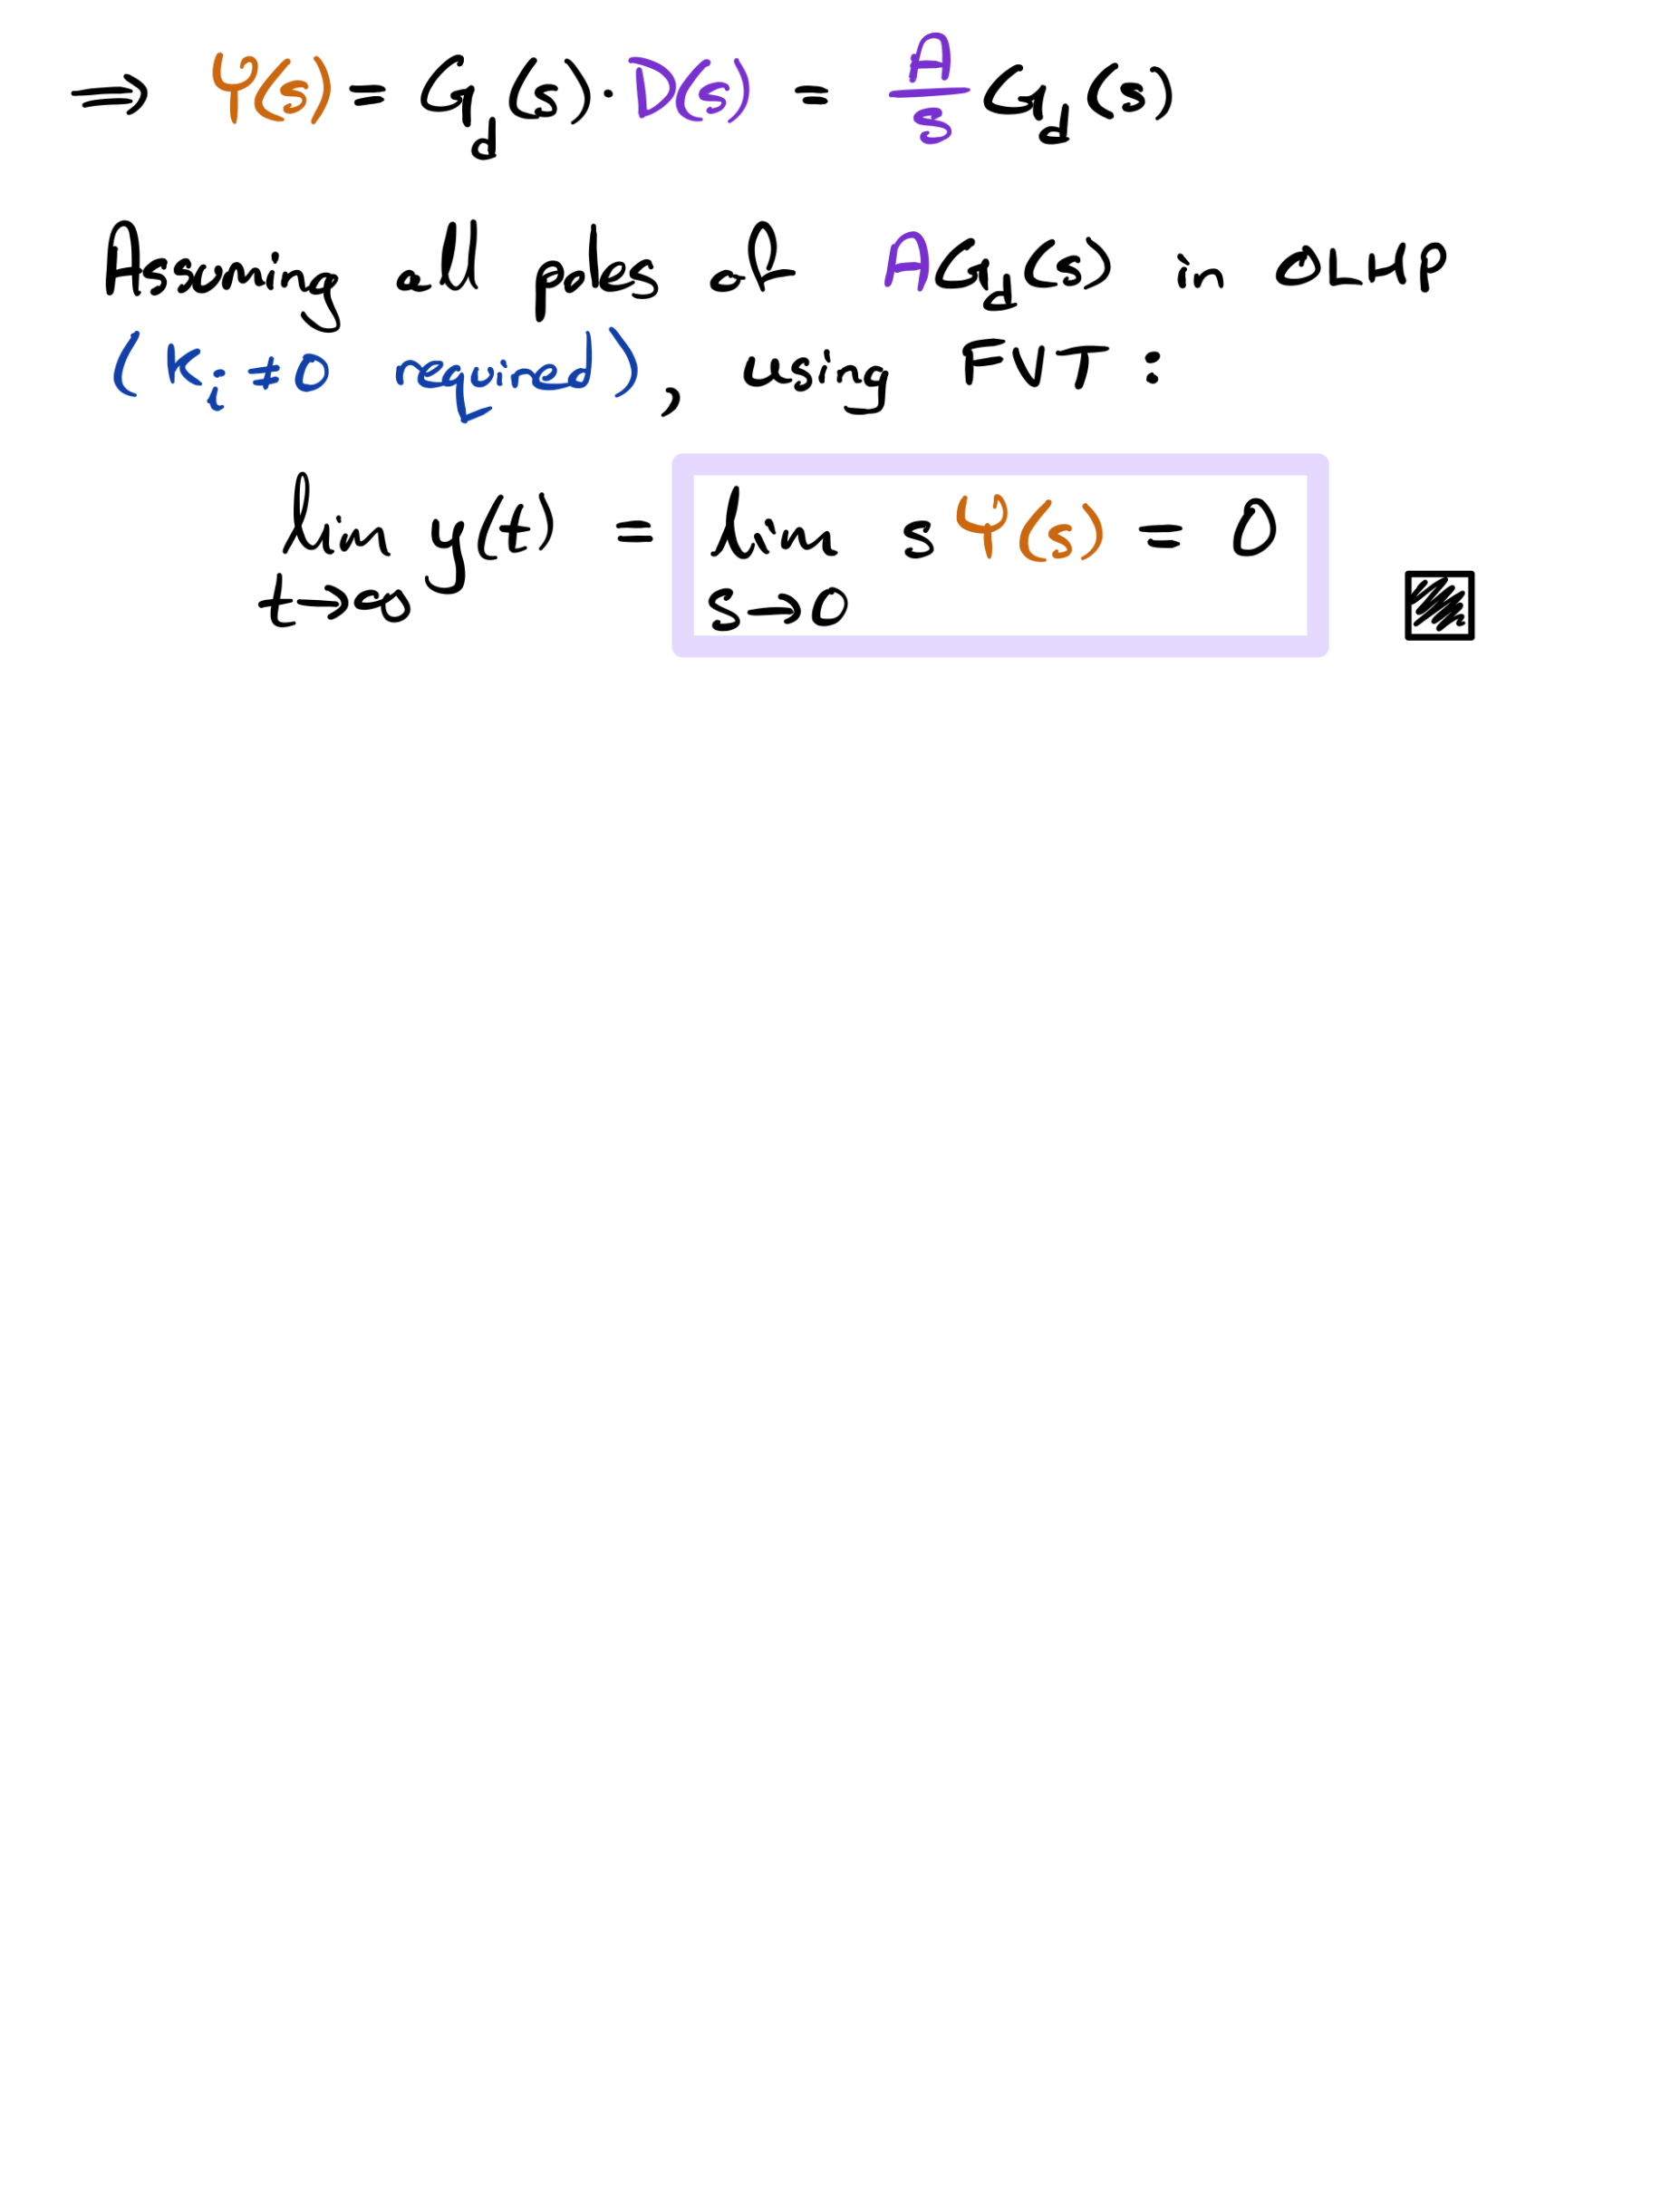 ⟹ Y(s) = G_d(s) · D(s) = A/s G_d(s)
Assuming all poles of A G_d(s) in OLHP
(K_i ≠ 0 required), using FVT:
lim_{t→∞} y(t) = lim_{s→0} s Y(s) = 0